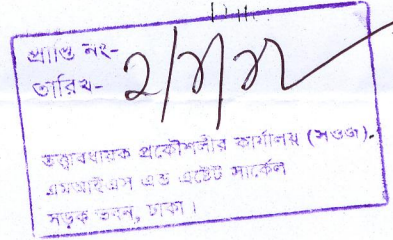 প্রাপ্তি নং-
তারিখ-
তত্ত্বাবধায়ক প্রকৌশলীর কার্যালয় (সওজ).
এমআইএস এন্ড এস্টেট সার্কেল
সড়ক ভবন, ঢাকা।